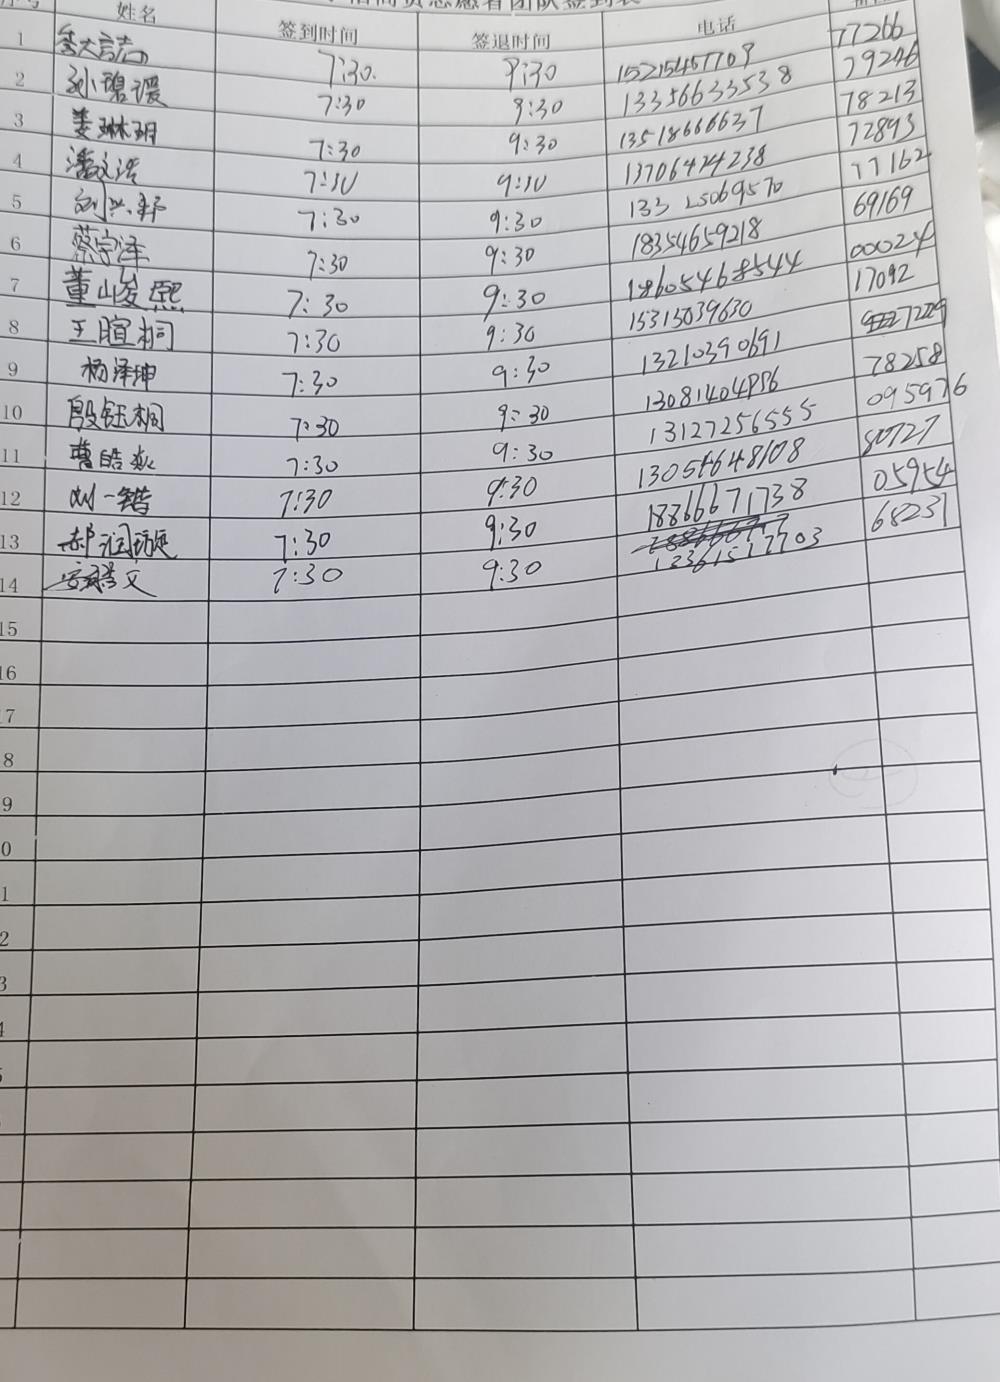 志愿者团队签到表
姓名 签到时间 签退时间 电话
1 7:30. 9:30 15215457709 77266
2 孙碧瑗 7:30 9:30 13356633538 79246
3 姜琳玥 7:30 9:30 13518666637 78213
4 潘文浩 7:30 9:30 13706424238 72893
5 刘兴轩 7:30 9:30 133 25069570 77162
6 蔡宇泽 7:30 9:30 18354659218 69169
7 董峻熙 7:30 9:30 18605468544 00024
8 王暄桐 7:30 9:30 15315039630 17092
9 杨泽坤 7:30 9:30 13210390691 27229
10 殷钰桐 7:30 9:30 13081404996 78258
11 曹皓焱 7:30 9:30 13127256555 095976
12 刘一锴 7:30 9:30 13054648108 80727
13 郝润珽 7:30 9:30 18866671738 05954
14 7:30 9:30 12361517703 68231
15
16
17
8
9
0
1
2
3
4